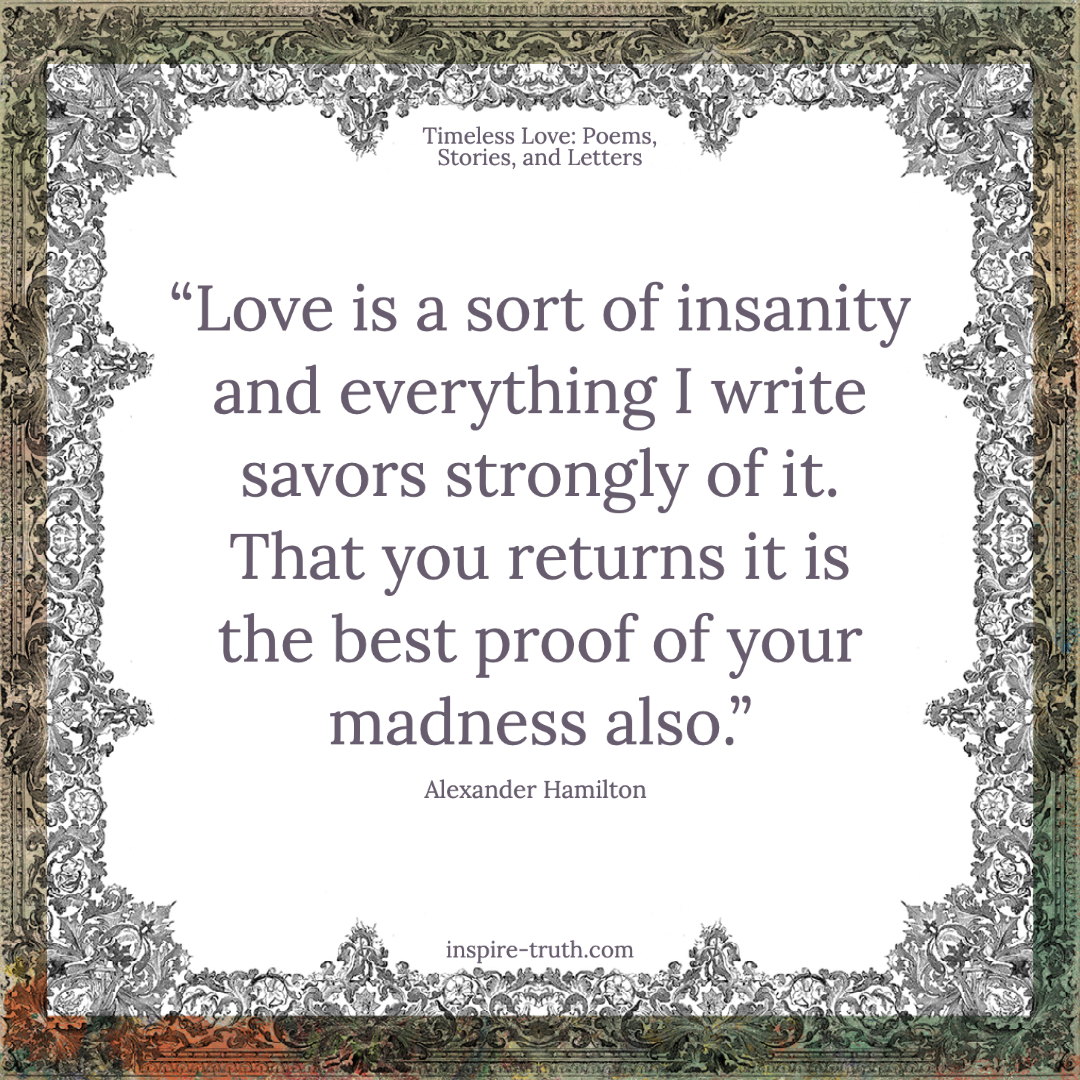 Timeless Love: Poems,
Stories, and Letters
“Love is a sort of insanity
and everything I write
savors strongly of it.
That you returns it is
the best proof of your
madness also.”
Alexander Hamilton
inspire-truth.com